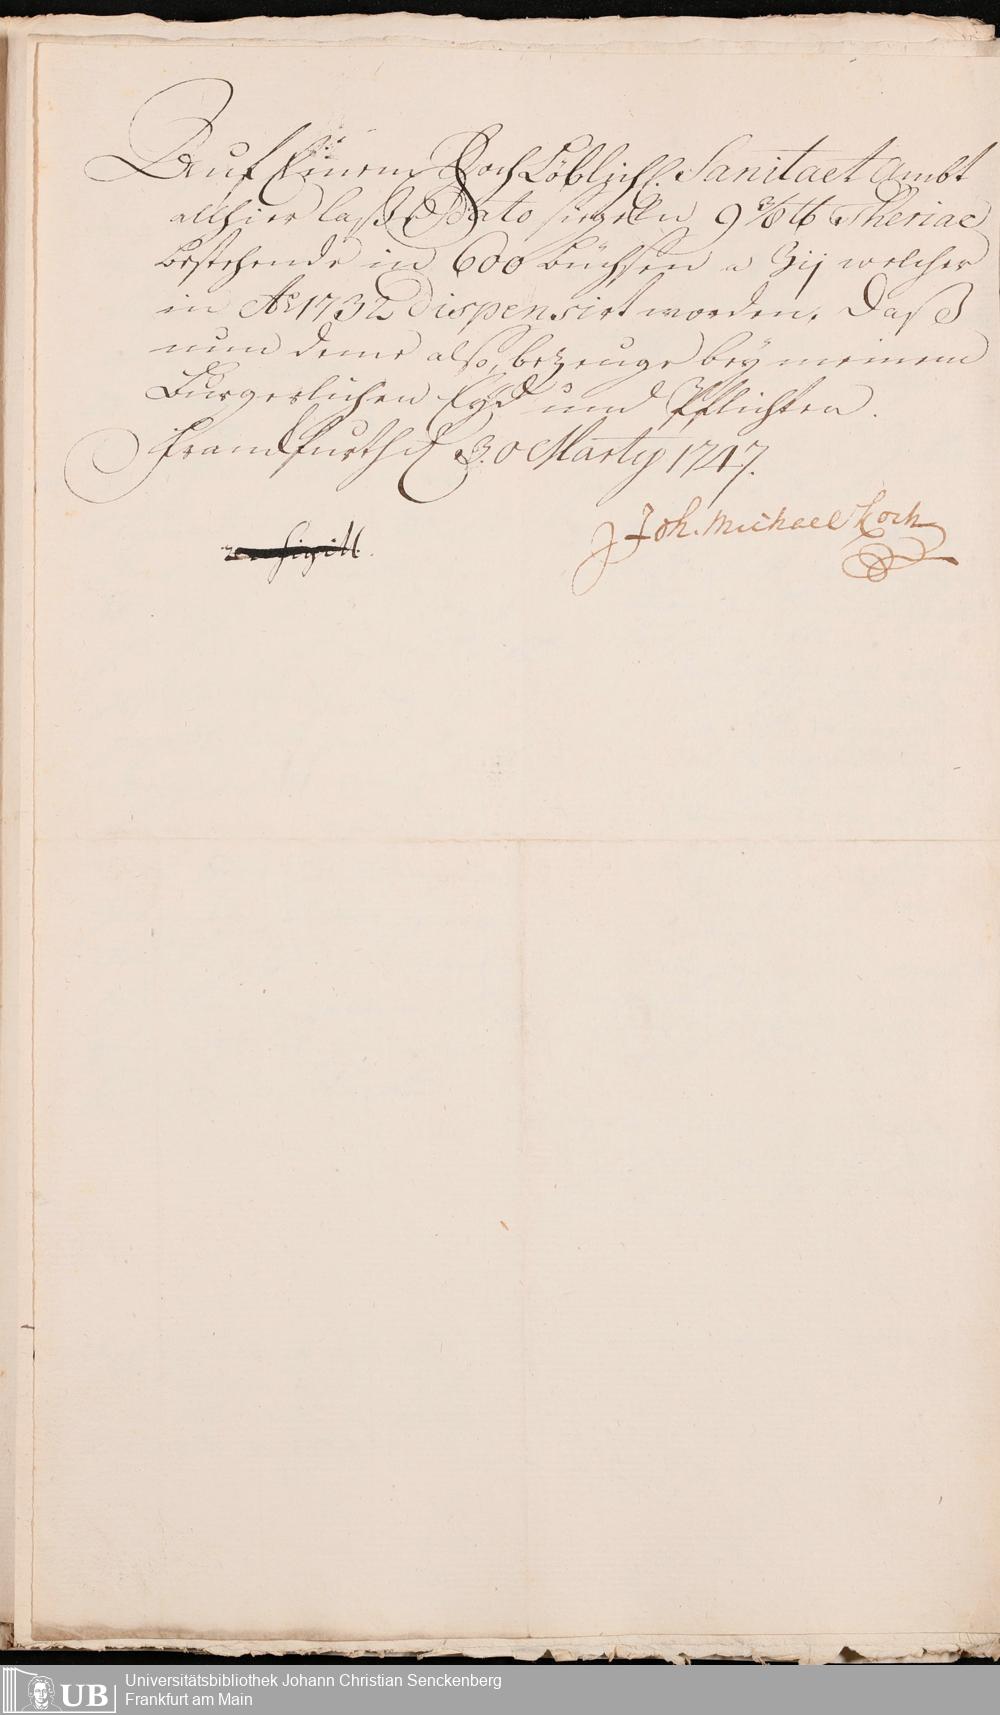 Auf Einem HochLöblich. Sanitaet Ambt
allhier laße Dato siegeln 9 3/8 ℔ Theriac
bestehende in 600 büchsen a ʒij welcher
in Ao 1732 dispensirt worden. Daß
nun deme also, bezeuge bey meinem
Burgerlichen Eyd und Pflichten.
Franckfurth d 30 Marty 1747.
Joh. Michael Koch
sigill.
Universitätsbibliothek Johann Christian Senckenberg
Frankfurt am Main
UB